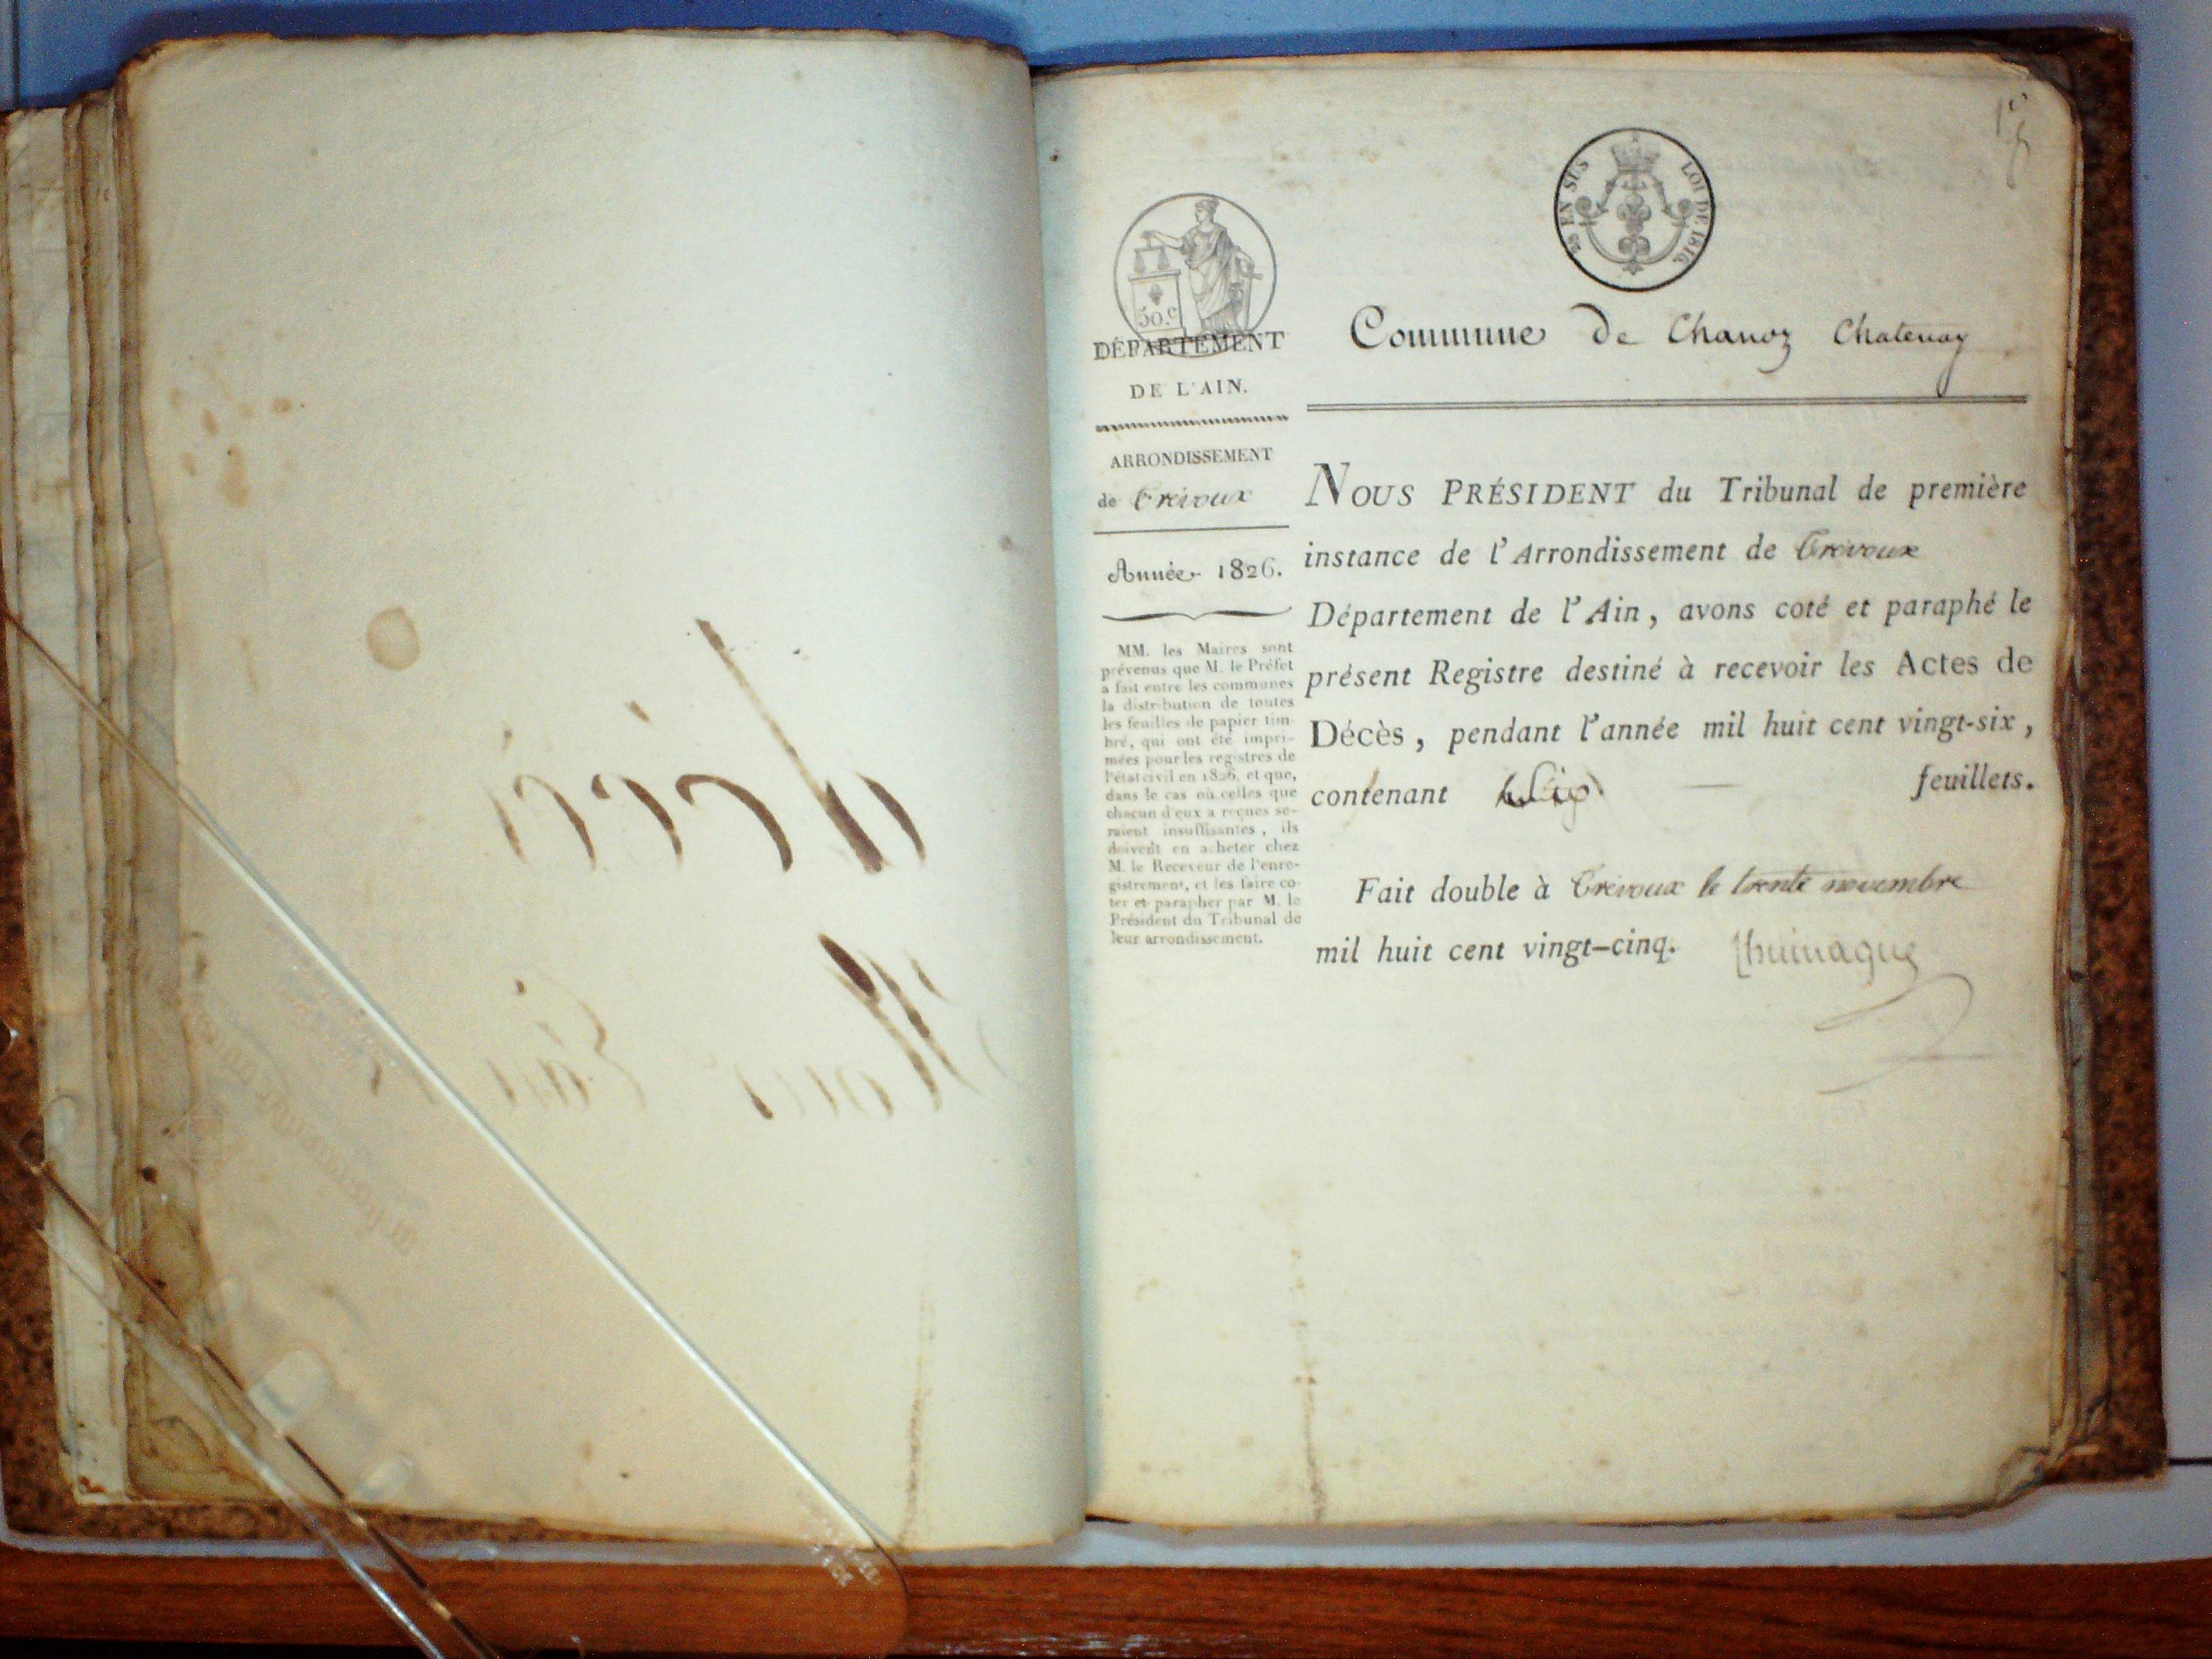 EN SUS LOI DE 1816.
50.c
DÉPARTEMENT
DE L'AIN.
ARRONDISSEMENT
de Trévoux
Année 1826.
MM. les Maires sont
prévenus que M. le Préfet
a fait entre les communes
la distribution de toutes
les feuilles de papier tim-
bré, qui ont été impri-
mées pour les registres de
l'état civil en 1826, et que,
dans le cas où celles que
chacun d'eux a reçues se-
raient insuffisantes, ils
doivent en acheter chez
M. le Receveur de l'enre-
gistrement, et les faire co-
ter et parapher par M. le
Président du Tribunal de
leur arrondissement.
Commune de Chanoz Chatenay
NOUS PRÉSIDENT du Tribunal de première
instance de l'Arrondissement de Trévoux
Département de l'Ain, avons coté et paraphé le
présent Registre destiné à recevoir les Actes de
Décès, pendant l'année mil huit cent vingt-six,
contenant feuillets.
Fait double à Trévoux le trente novembre
mil huit cent vingt-cinq.